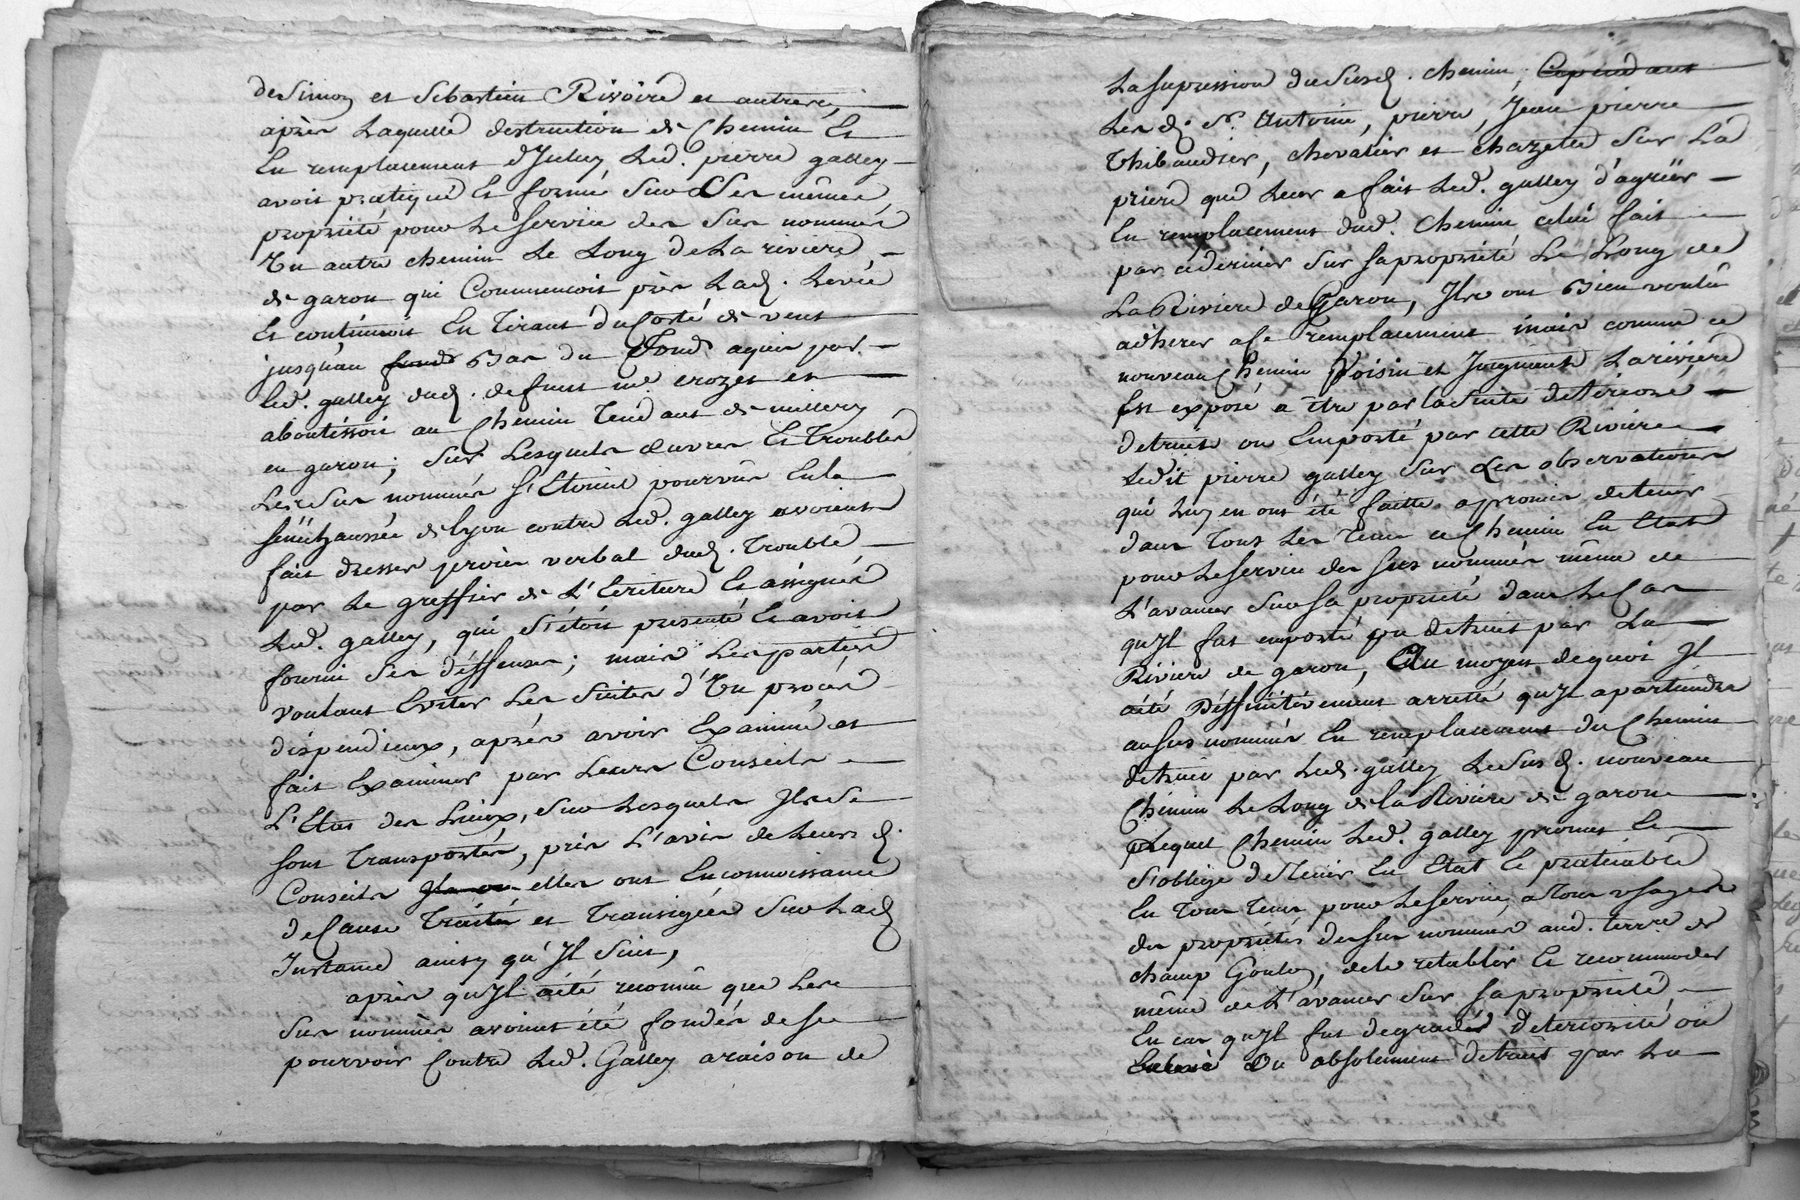 de Simon et Sebastien Rivoire et autres,
après Laquelle destruction de Chemin Et
En remplacement d'Iceluy Led. pierre galley
avoit pratiqué Et formé sur Ses mêmes
propriété pour Le service des Sus nommés
Un autre chemin Le Long de La riviere,
de garon qui Commencoit près Lad. Levée
Et continuoit En Tirant du Costé de vent
jusquau fond Bas du Fond aquis par
led. galley dud. defunt me. crozet et
aboutissoit au Chemin Tendant de millery
en garon; Sur Lesquels œuvres Et Troubles
Les Sus nommés S'Etoient pourvûs En la
sénéchaussée de lyon contre Led. galley avoient
fait dresser procès verbal dud. Trouble
par Le greffier de L'Ecriture Et assigné
Led. galley, qui s'étoit presenté Et avoit
fourni Ses déffenses; mais Les parties
voulant Eviter Les Suites d'Un procès
dispendieux, après avoir Examiné et
fait Examiner par Leurs Conseils
L'Etat des Lieux, Sur Lesquels Ils Se
sont Transportés, pris L'avis de Leurs d.
Conseils Ils ont elles ont En connoissance
de Cause Traité et Transigées Sur Lad.
Instance ainsy qu'Il Suit,
après qu'Il a été reconnû que Les
Sus nommés avoient été fondés de se
pourvoir Contre Led. Galley a raison de
La supression du Susd. chemin, Cependant
Les d. Srs. Antoine, pierre, Jean pierre
Thibaudier, chevalier et chazette Sur La
priere que Leur a fait Led. galley d'agréer
En remplacement dud. Chemin celui fait
par ce dernier Sur sa propriété Le Long de
La Riviere de Garon, Ils ont Bien voulû
adherer a Ce remplacement mais comme ce
nouveau Chemin Voisin et Joignant La riviere
Est exposé a être par la Suite deterioré
detruit ou Emporté par cette Riviere
Ledit pierre galley Sur Les observations
qui Luy en ont été faitte a promis de tenir
dans Tous Les Tems ce Chemin En Etat
pour Le service des sus nommés même de
L'avancer Sur Sa propriété dans Le Cas
qu'Il fut emporté ou detruit par La
Riviere de garon, Au moyen de quoi Il
a été Déffinitivement arretté qu'Il apartiendra
aux sus nommés En remplacement du Chemin
detruit par Led. galley Le Sus d. nouveau
Chemin Le Long de la Riviere de garon
Lequel Chemin Led. galley promet Et
s'oblige de Tenir En Etat Et pratiquable
En Tous Tems pour Le service, a Tous usages
des propriétés des sus nommés aud. terre de
champ Goulin, de le retablir Et recommoder
même de L'avancer Sur sa propriété
En cas qu'Il fut degradé deterioré ou
Enlevé Ou absolument detruit par La